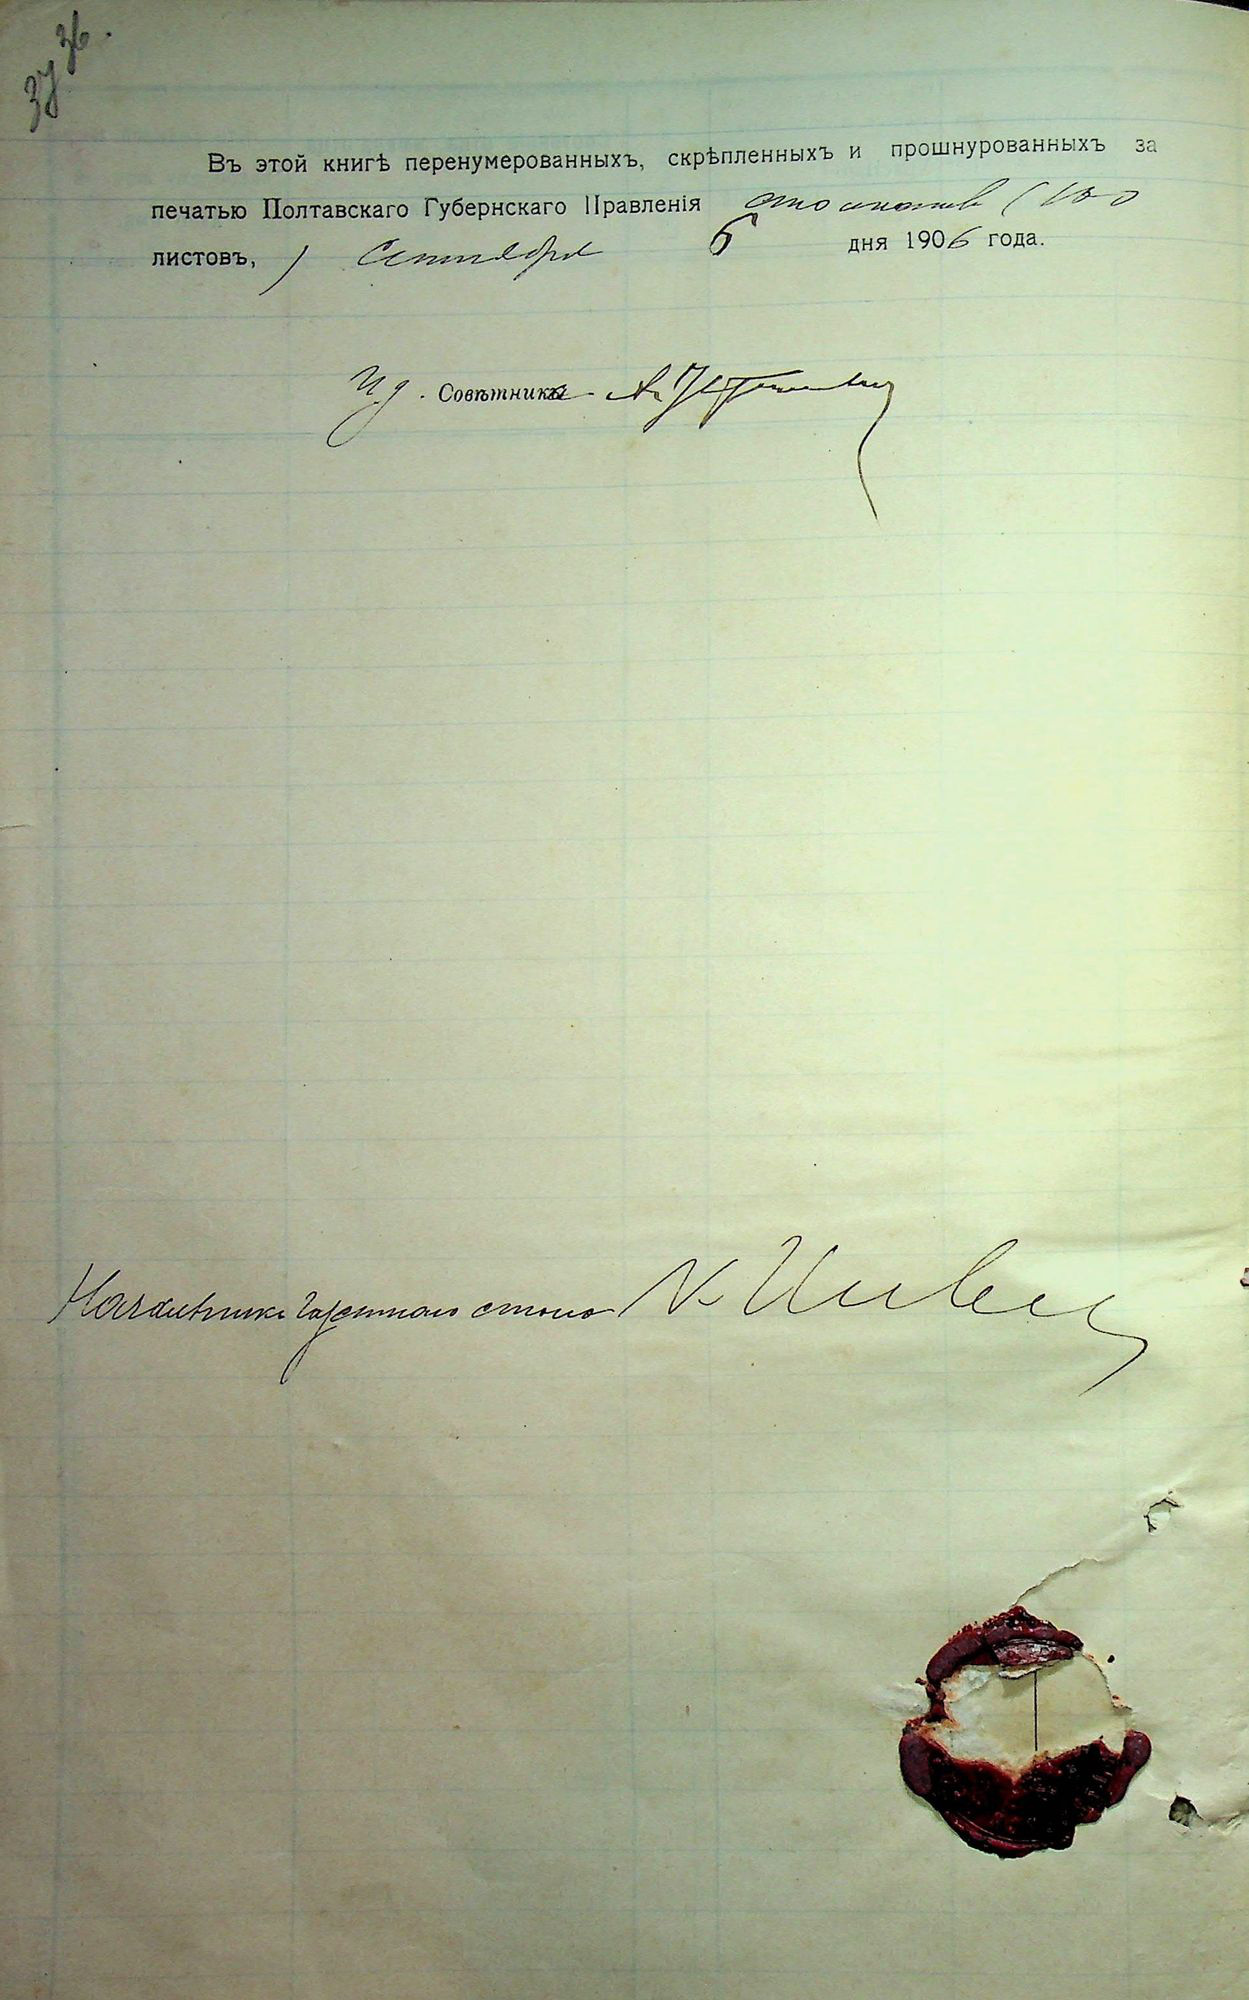 36.
37
Въ этой книгѣ перенумерованныхъ, скрѣпленныхъ и прошнурованныхъ за
печатью Полтавскаго Губернскаго Правленія сто (100
листовъ, ) Сентября 6 дня 1906 года.
И д. Совѣтника
Начальникъ Газетнаго стола